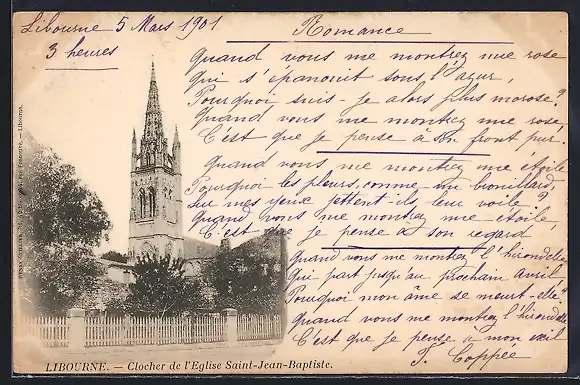 Libourne 5 Mars 1901
3 heures
Romance
Quand vous me montrez une rose
Qui s'épanouit sous l'azur,
Pourquoi suis-je alors plus morose?
Quand vous me montrez une rose,
C'est que je pense à son front pur.
Quand vous me montrez une étoile
Pourquoi les pleurs, comme un brouillard,
Sur mes yeux jettent-ils, leur voile?
Quand vous me montrez une étoile,
C'est que je pense à son regard
Quand vous me montrez l'hirondelle
Qui part jusqu'au prochain avril
Pourquoi mon âme se meurt-elle?
Quand vous me montrez l'hirondelle
C'est que je pense à mon exil
F. Coppée
LIBOURNE. — Clocher de l'Eglise Saint-Jean-Baptiste.
Libourne.